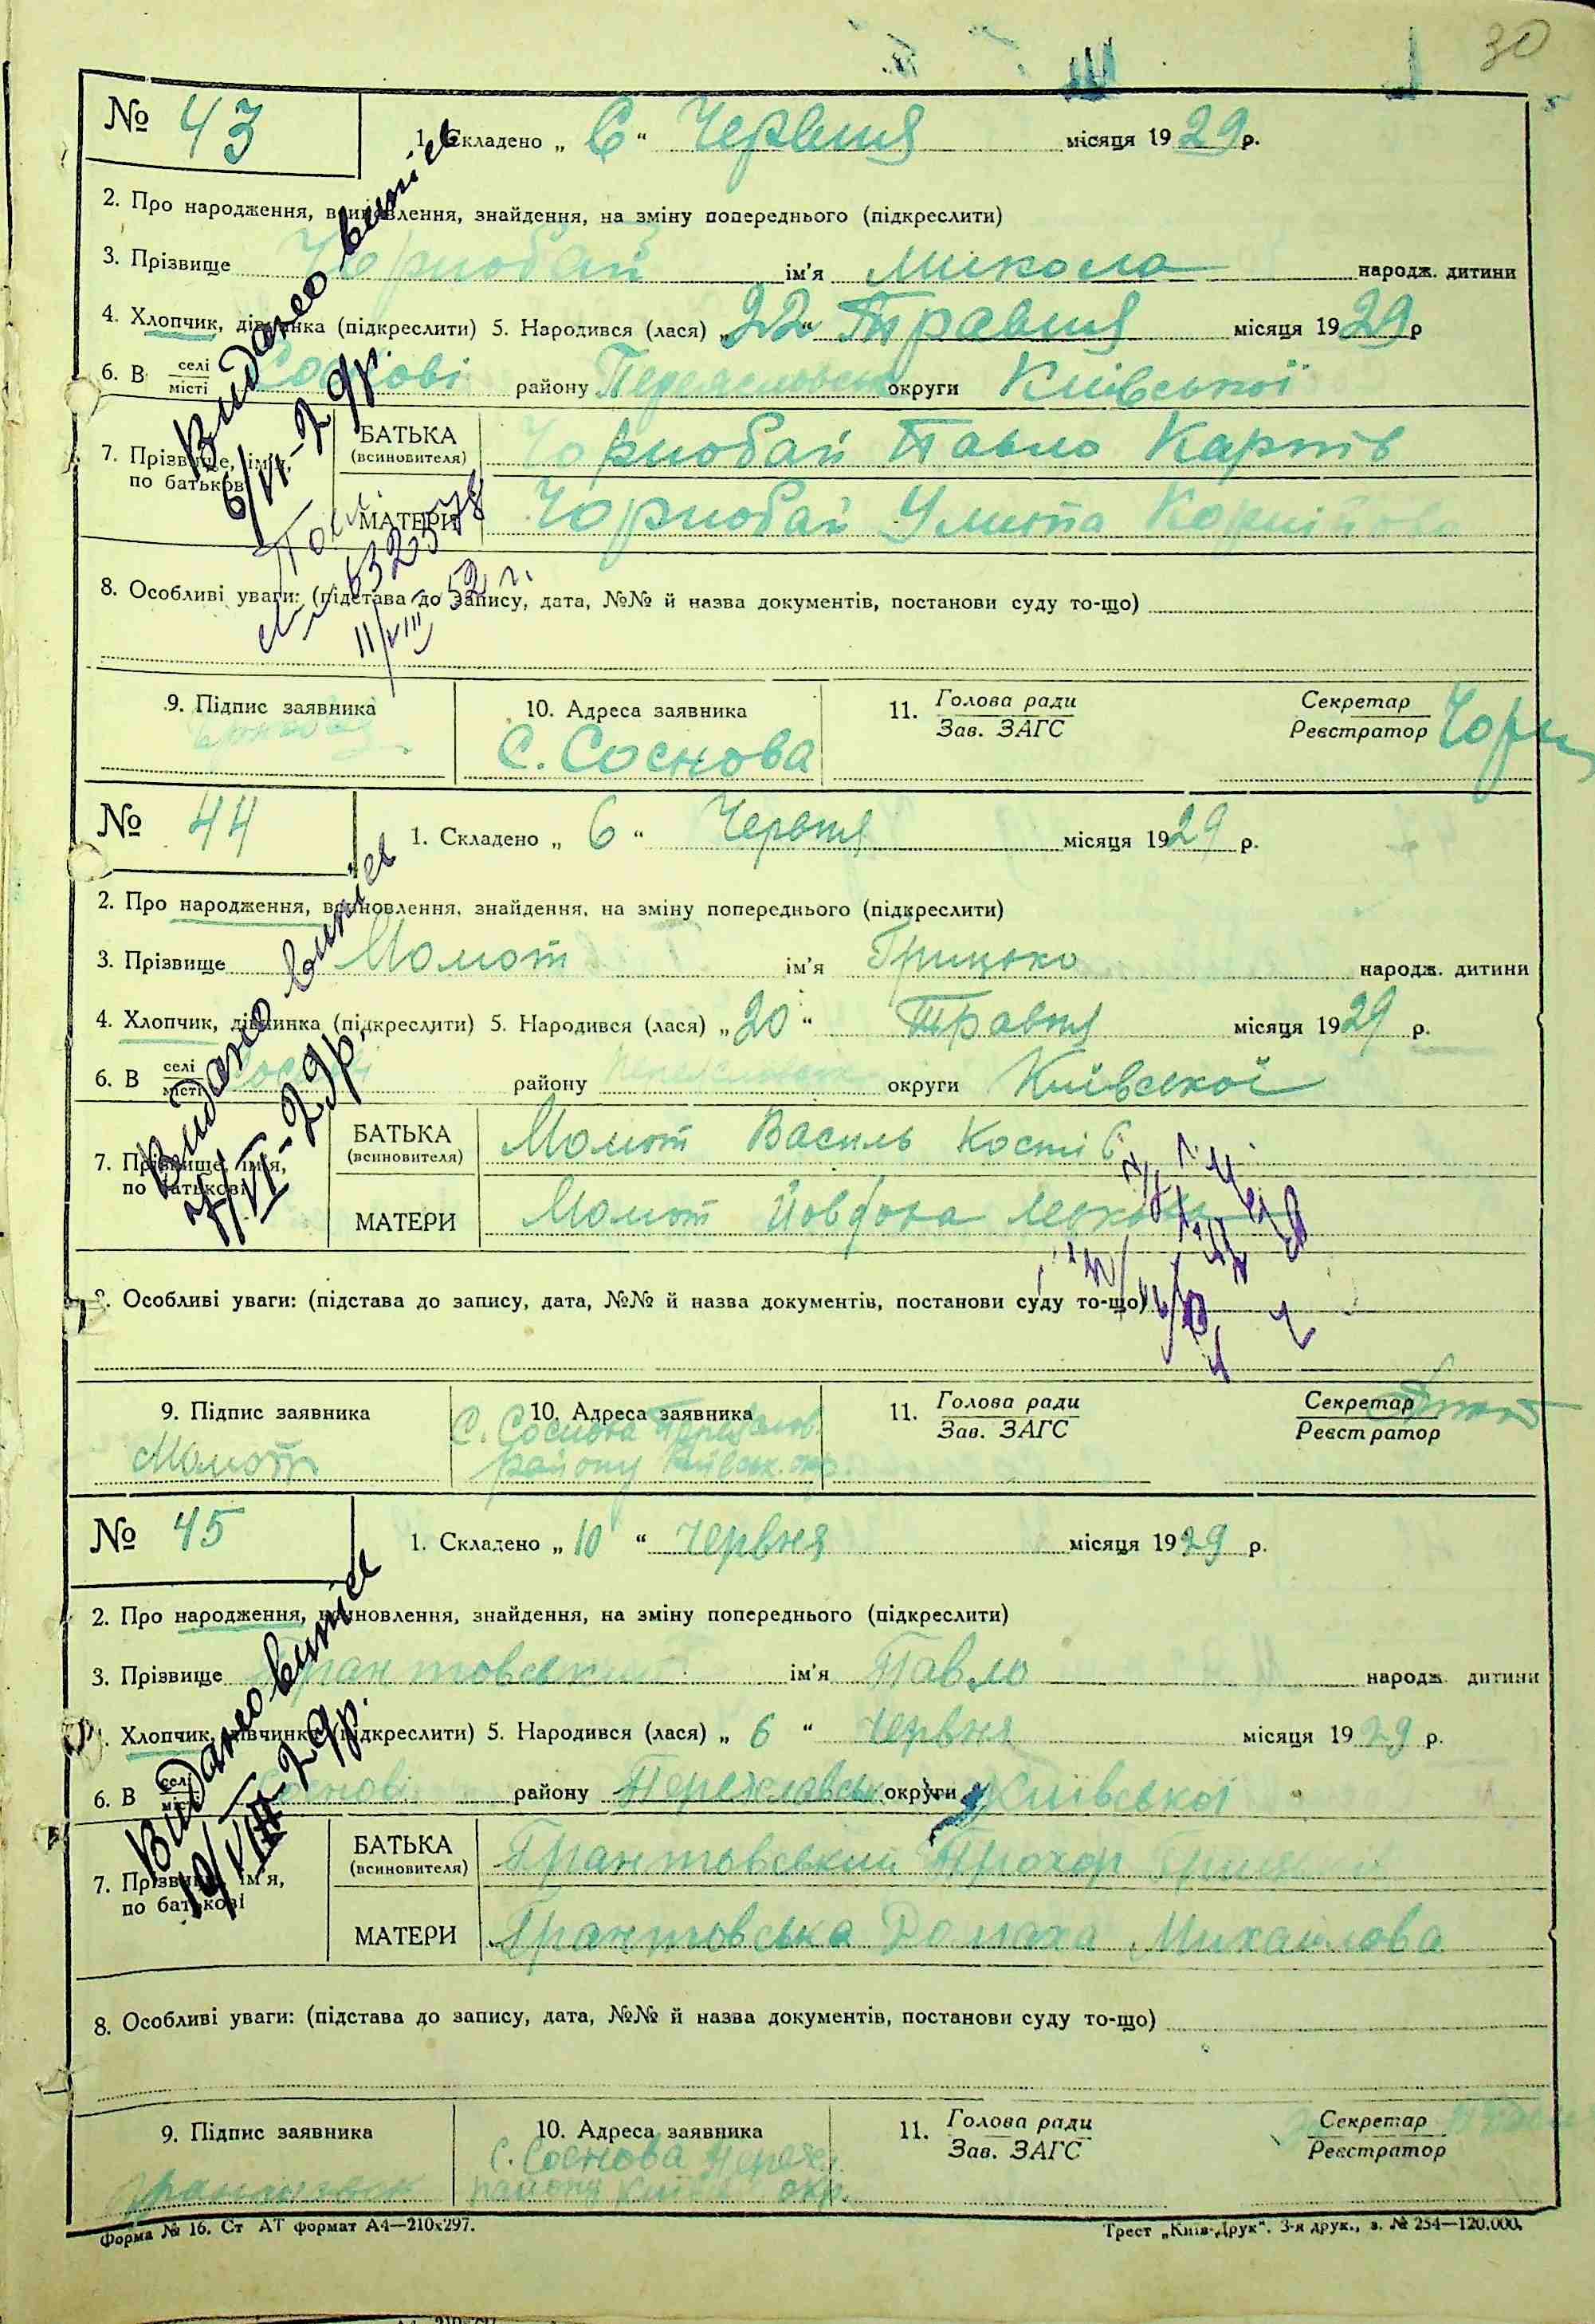 30
№ 43
1. Складено „ 6 “ Червня місяця 1929 р.
2. Про народження, всиновлення, знайдення, на зміну попереднього (підкреслити)
3. Прізвище Чорнобай ім'я Микола народж. дитини
4. Хлопчик, дівчинка (підкреслити) 5. Народився (лася) „ 22 “ Травня місяця 1929 р
6. В селі місті Соснові району Переяславськ округи Київської
7. Прізвище, ім'я, по батькові
БАТЬКА (всиновителя) Чорнобай Павло Карпів
МАТЕРИ Чорнобай Улита Корнійова
Видано витяг
6/VI-29р.
632578
11/VIII 52 г.
8. Особливі уваги: (підстава до запису, дата, №№ й назва документів, постанови суду то-що)
9. Підпис заявника
10. Адреса заявника
с. Соснова
11. Голова ради
Зав. ЗАГС
Секретар
Реєстратор
№ 44
1. Складено „ 6 “ Червня місяця 1929 р.
2. Про народження, всиновлення, знайдення, на зміну попереднього (підкреслити)
3. Прізвище Момот ім'я Грицько народж. дитини
4. Хлопчик, дівчинка (підкреслити) 5. Народився (лася) „ 20 “ Травня місяця 1929 р.
6. В селі місті Соснові району округи Київської
7. Прізвище, ім'я, по батькові
БАТЬКА (всиновителя) Момот Василь Костів
МАТЕРИ Момот Йовдоха
Видано витяг
7/VI-29р.
8. Особливі уваги: (підстава до запису, дата, №№ й назва документів, постанови суду то-що)
9. Підпис заявника
Момот
10. Адреса заявника
С. Соснова Переяслов.
району Київськ. окр.
11. Голова ради
Зав. ЗАГС
Секретар
Реєстратор
№ 45
1. Складено „ 10 “ червня місяця 1929 р.
2. Про народження, всиновлення, знайдення, на зміну попереднього (підкреслити)
3. Прізвище Грантовський ім'я Павло народж. дитини
4. Хлопчик, дівчинка (підкреслити) 5. Народився (лася) „ 6 “ червня місяця 1929 р.
6. В селі місті Соснові району Переяславськ округи Київської
7. Прізвище, ім'я, по батькові
БАТЬКА (всиновителя) Грантовський Прохор
МАТЕРИ Грантовська Домаха Михайлова
Видано витяг
8. Особливі уваги: (підстава до запису, дата, №№ й назва документів, постанови суду то-що)
9. Підпис заявника
10. Адреса заявника
С. Соснова Переяс.
району Київ окр.
11. Голова ради
Зав. ЗАГС
Секретар
Реєстратор
Форма № 16. Ст АТ формат А4—210х297.
Трест „Київ-Друк“. 3-я друк., з. № 254—120.000.